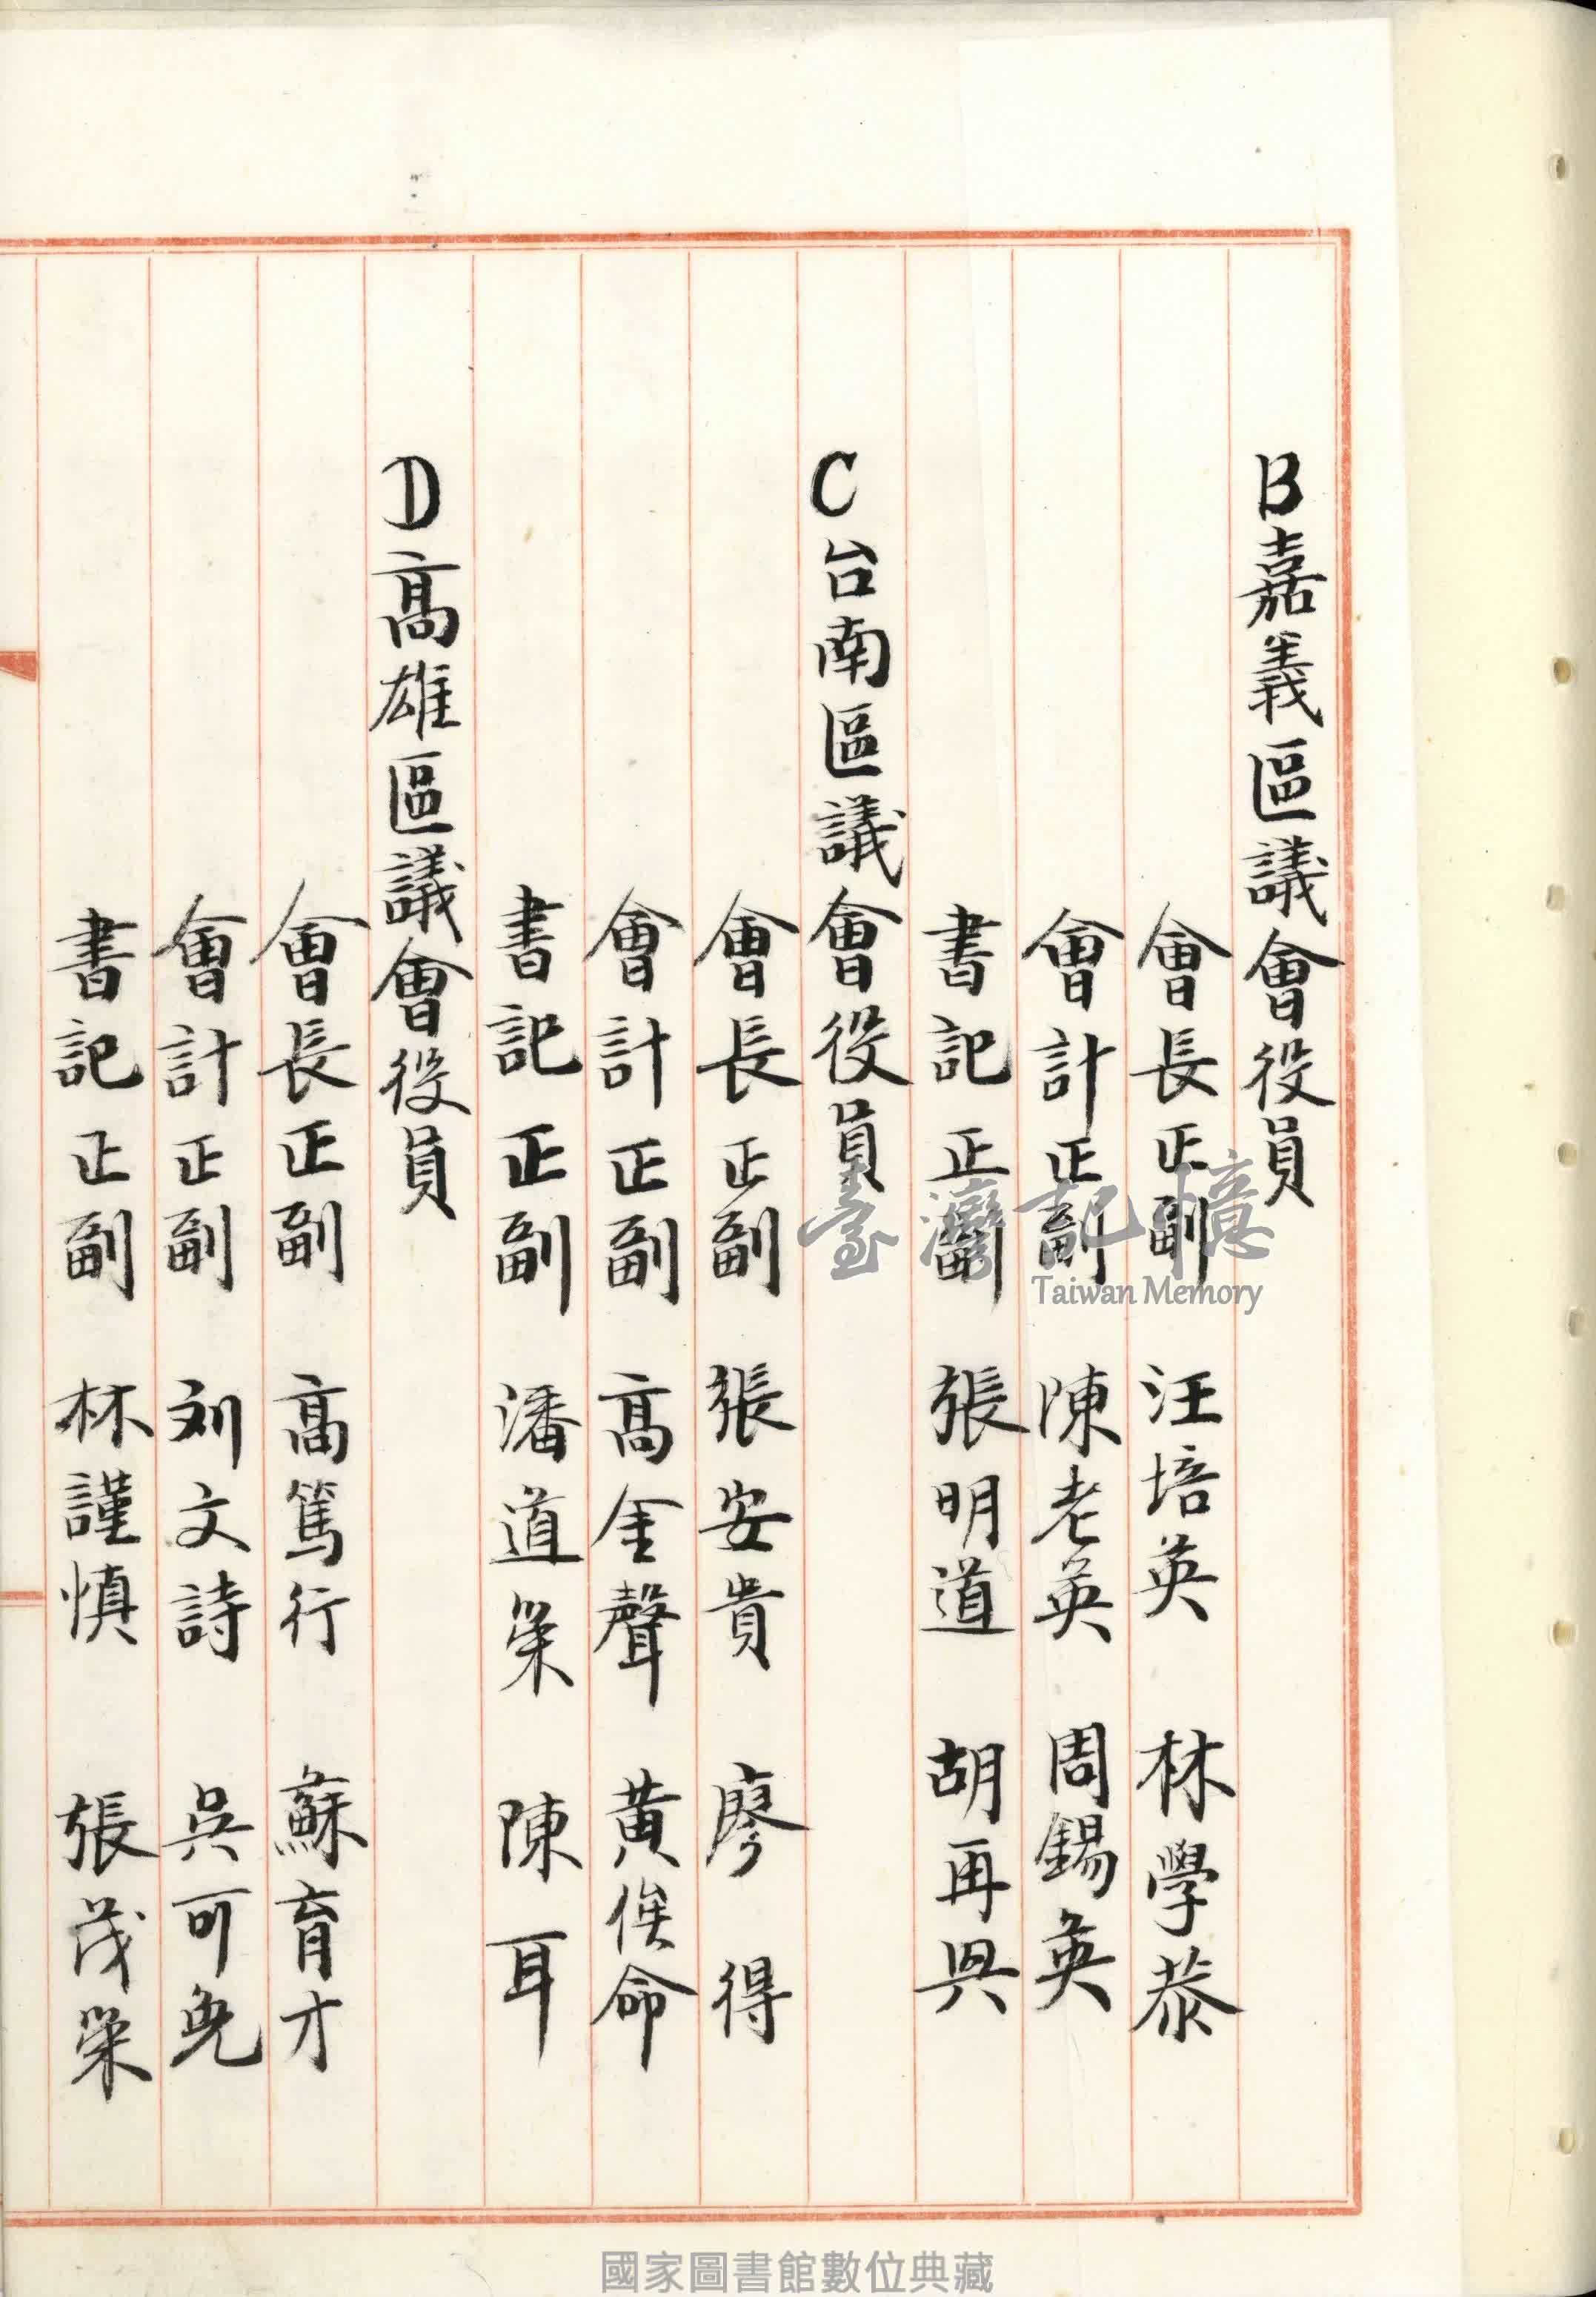 B嘉義區議會役員
會長正副 汪培英 林學恭
會計正副 陳老英 周錫英
書記正副 張明道 胡再興
C台南區議會役員
會長正副 張安貴 廖得
會計正副 高金聲 黃俟命
書記正副 潘道榮 陳耳
D高雄區議會役員
會長正副 高篤行 蘇育才
會計正副 刘文詩 吳可免
書記正副 林謹慎 張茂榮
臺灣記憶
Taiwan Memory
國家圖書館數位典藏